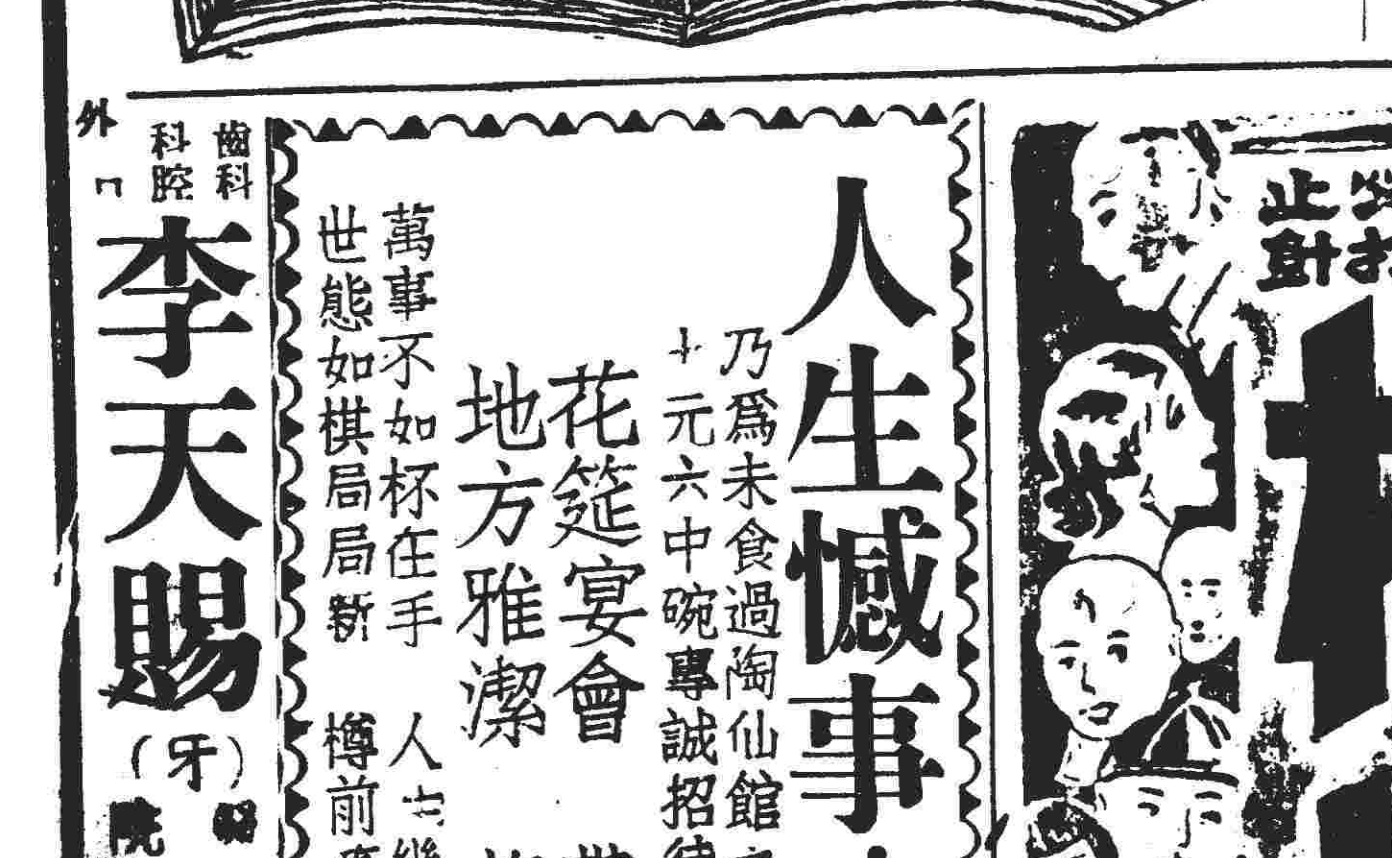 止
釘
人生憾事
乃為未食過陶仙館
十元六中碗專誠招
花筵宴會
地方雅潔
萬事不如杯在手 人
世態如棋局局新 樽前
齒科
科腔
外
李天賜
（牙）
院